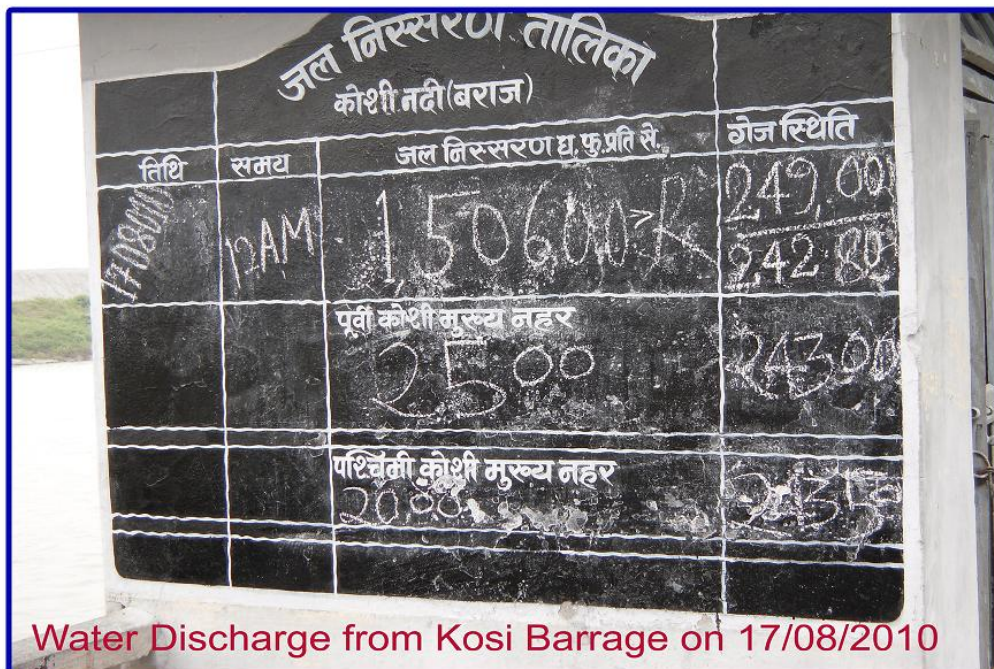 जल निस्सरण तालिका
कोशी नदी (बराज)
तिथि समय जल निस्सरण घ. फु. प्रति से. गेज स्थिति
12AM 1,50600 249.00
242.80
पूर्वी कोशी मुख्य नहर
2500 243.00
पश्चिमी कोशी मुख्य नहर
Water Discharge from Kosi Barrage on 17/08/2010